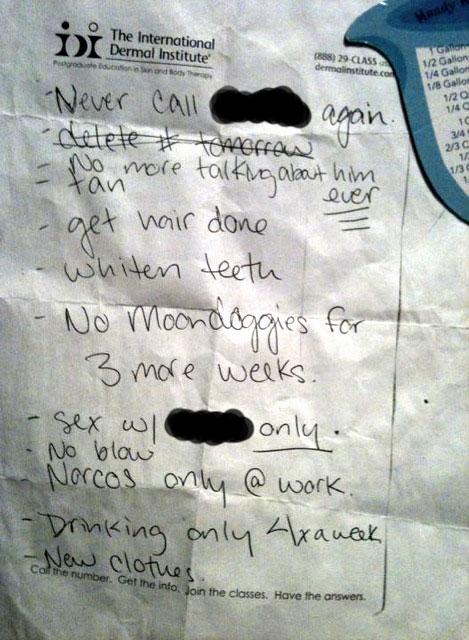 The International
Dermal Institute
Postgraduate Education in Skin and Body Therapy
(888) 29-CLASS
dermalinstitute.com
Handy
1 Gallon
1/2 Gallon
1/4 Gallon
1/8 Gallon
1/2 Q
1/4
1
3/4
2/3 C
1/
1/3
- Never call again.
- delete # tomorrow
- No more talking about him
ever
- tan
- get hair done
- whiten teeth
- No Moondoggies for
3 more weeks.
- sex w/ only.
- No blow
Narcos only @ work.
- Drinking only 4x a week
- New clothes.
Call the number. Get the info. Join the classes. Have the answers.